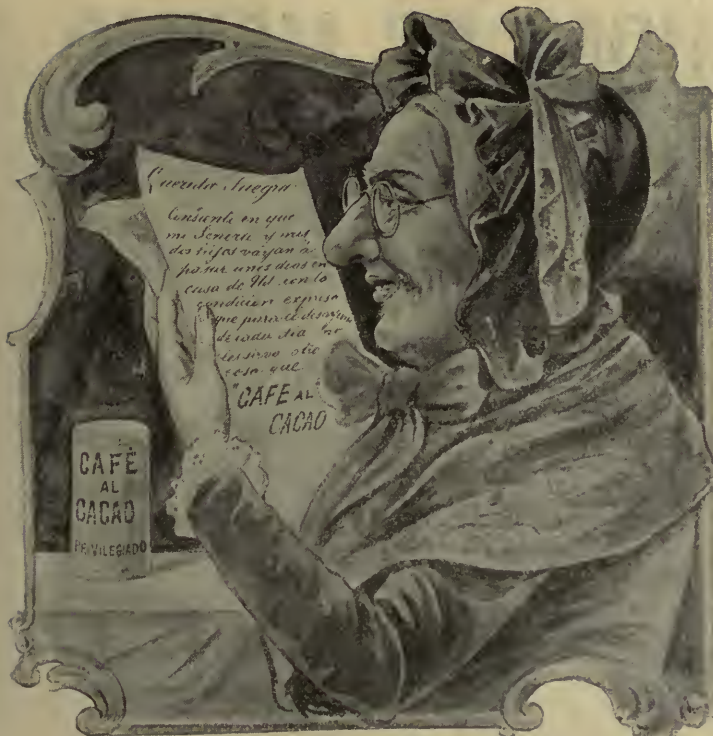 Querida Suegra
Consiento en que
mi Señora y mis
dos hijos vayan à
pasar unos dias en
casa de Ud. con la
condicion expresa
que para el desayuno
de cada dia no
les sirva otra
cosa que
"CAFE AL
CACAO
CAFÉ
AL
CACAO
PRIVILEGIADO